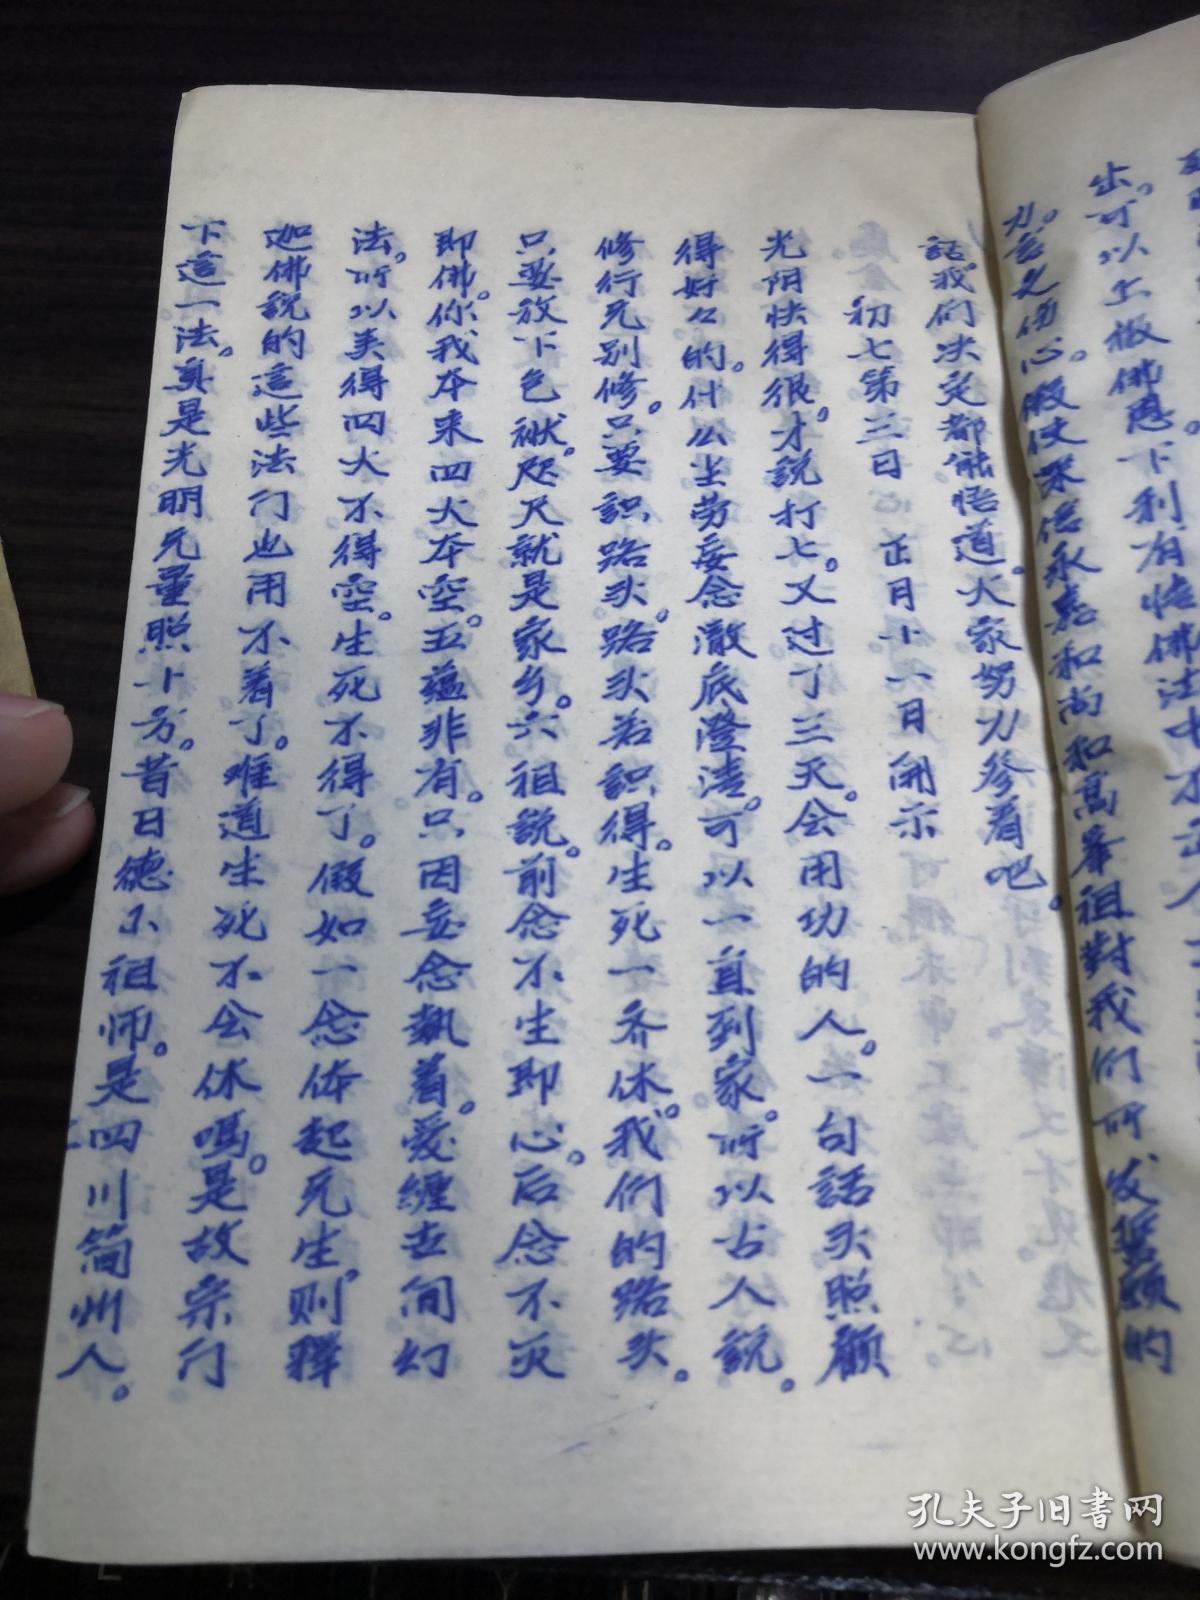 出。可以上报佛恩。下利有情佛法中
力言之伤心。假使深信永嘉和尚和高峯祖對我们所发誓愿的
話。我们决定都能悟道。大家努力參着吧。
初七第三日 正月十一日開示
光阴快得很。才說打七。又过了三天。会用功的人。一句話头照顧
得好好的。什么尘劳妄念澈底澄清。可以一直到家。所以古人說。
修行无别修。只要識路头。路头若識得。生死一齐休。我们的路头。
只要放下包袱。咫尺就是家乡。六祖說。前念不生即心。后念不灭
即佛。你我本来四大本空。五蕴非有。只因妄念執着。爱缠世间幻
法。所以弄得四大不得空。生死不得了。假如一念体起无生。則釋
迦佛說的這些法门也用不着了。难道生死不会休嗎。是故宗门
下這一法。真是光明无量照十方。昔日德山祖师。是四川简州人。
孔夫子旧書网
www.kongfz.com